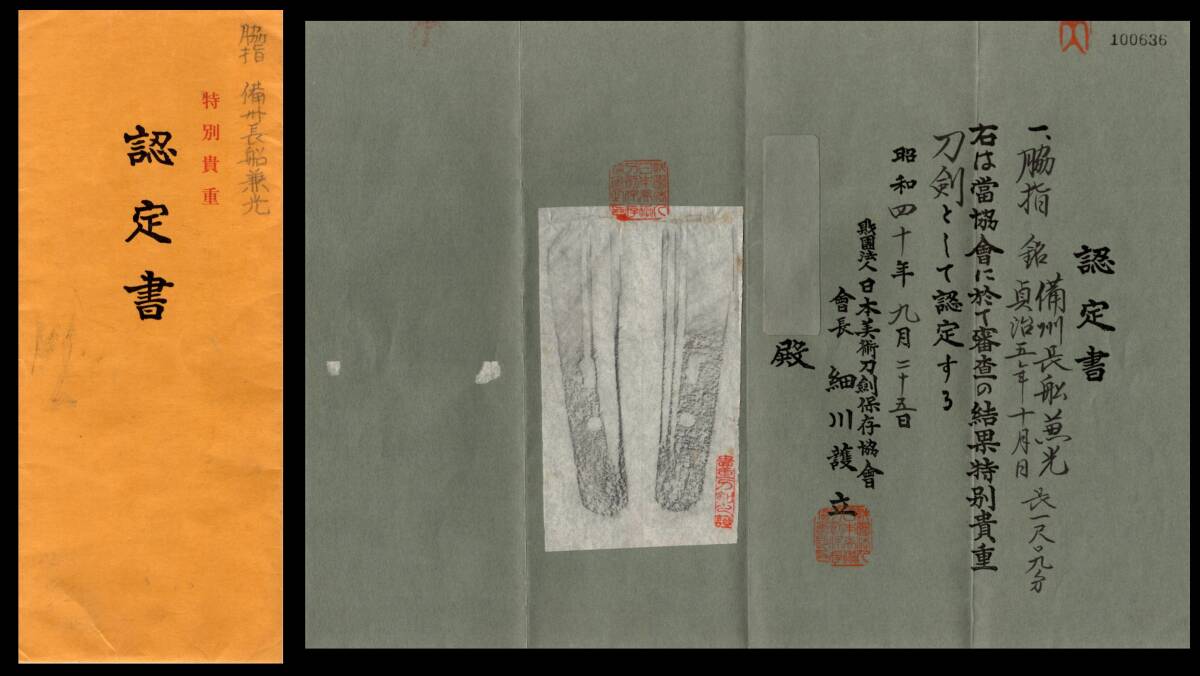 脇指 備州長船兼光
特別貴重
認定書
100636
認定書
一、脇指 銘 備州長船兼光
貞治五年十月日 長一尺〇九分
右は當協會に於て審査の結果特別貴重
刀劍として認定する
昭和四十年 九月 二十五日
財團法人日本美術刀劍保存協會
會長 細川護立
殿